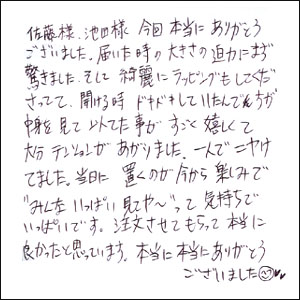 佐藤様、池田様 今回 本当に ありがとう
ございました。届いた時の大きさの迫力にまず
驚きました。そして 綺麗に ラッピングも してくだ
さってて、開ける時 ドキドキしていたんですが
中身を見て 込てた事が すごく 嬉しくて
大分 テンションが あがりました。一人で ニヤけ
てました。当日に 置くのが 今から 楽しみで
"みんな いっぱい 見てや〜" って 気持ちで
いっぱいです。注文させてもらって 本当に
良かったと思っています。本当に本当に ありがとう
ございました